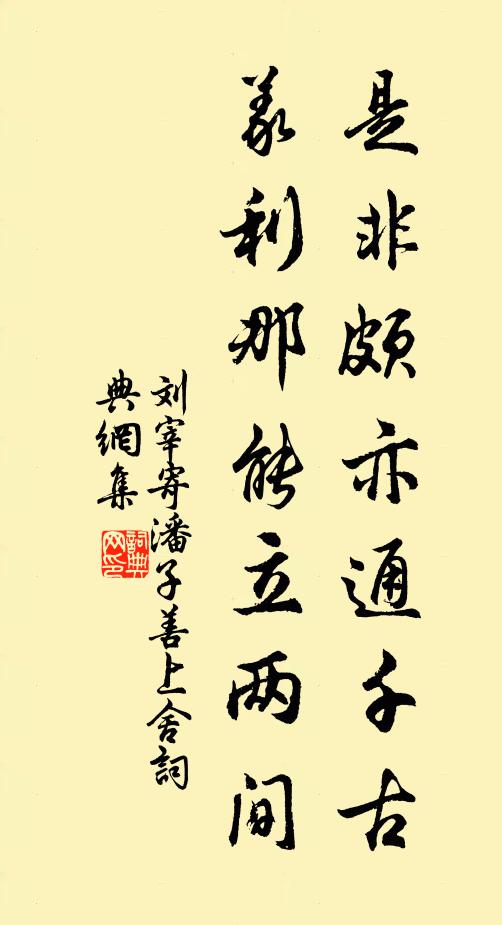 是非頗亦通千古
義利那能立两间
刘宰寄潘子善上舍詞
典網集
詞典网印